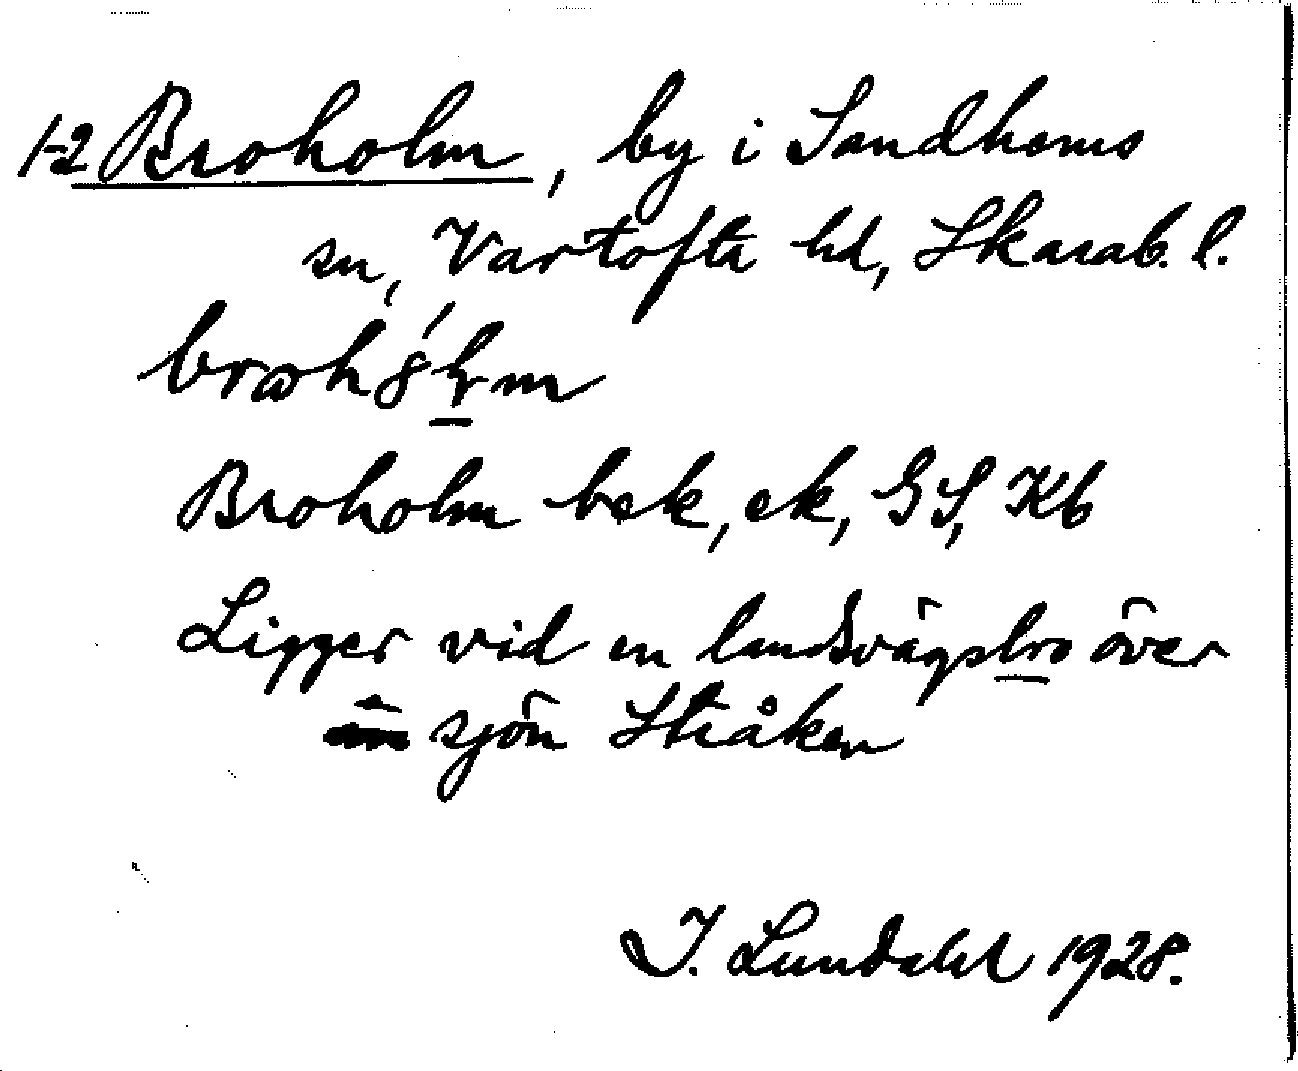 1-2 Broholm, by i Sandhems
sn, Vartofta hd, Skarab. l.
Broholm bek, ek, GS, Kb
Ligger vid en landsvägsbro över
sjön Stråken
I. Lundahl 1928.